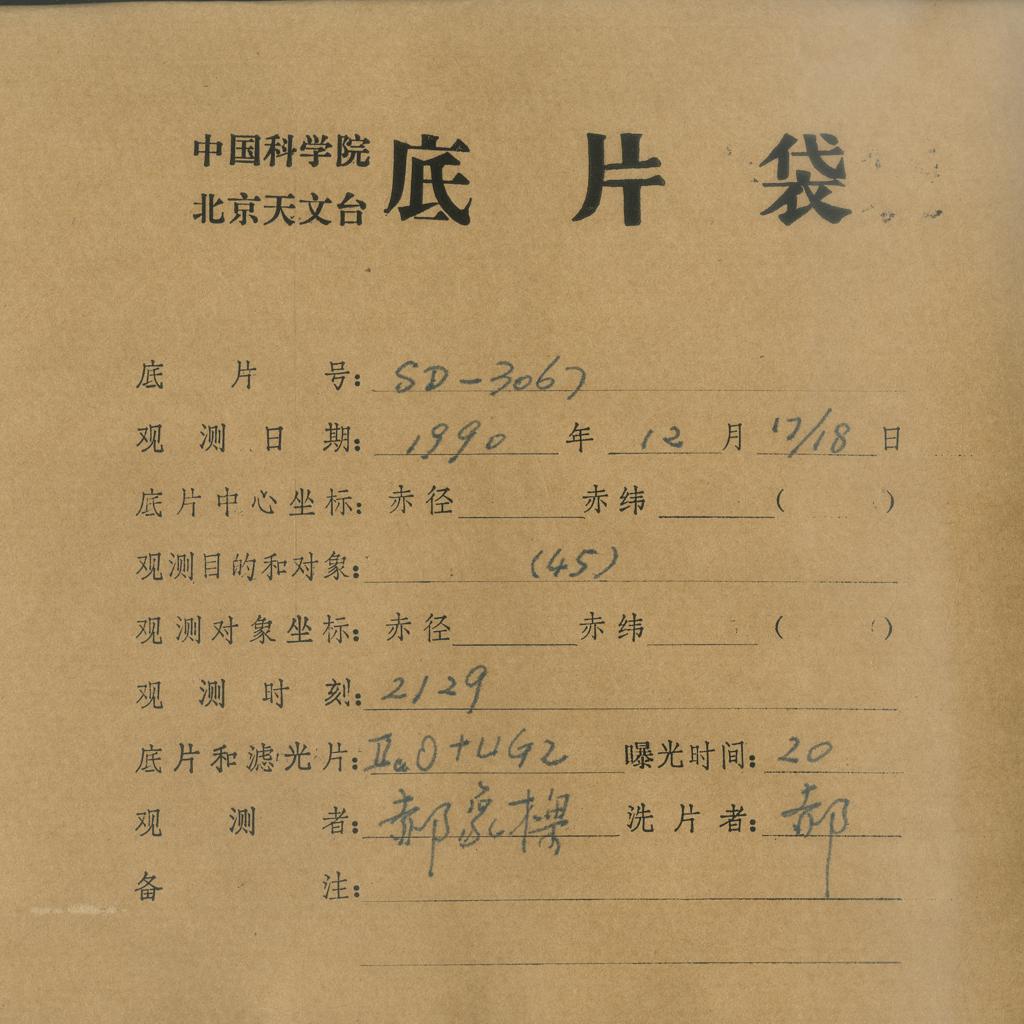 中国科学院
北京天文台
底片袋
底片号: SD-3067
观测日期: 1990 年 12 月 17/18 日
底片中心坐标: 赤径 赤纬 ( )
观测目的和对象: (45)
观测对象坐标: 赤径 赤纬 ( )
观测时刻: 2129
底片和滤光片: IIaO+UG2 曝光时间: 20
观测者: 郝象樑 洗片者: 郝
备注: